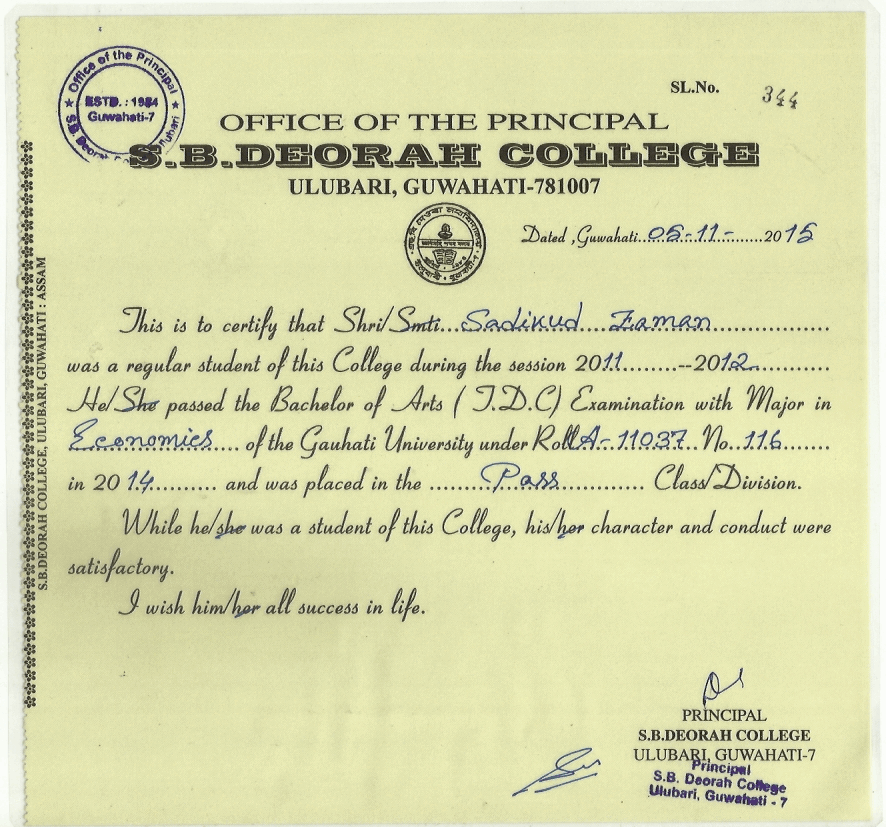 Office of the Principal
ESTD. : 1984
Guwahati-7
S.B. Deorah
SL.No. 344
OFFICE OF THE PRINCIPAL
S.B.DEORAH COLLEGE
ULUBARI, GUWAHATI-781007
Dated ,Guwahati..05-11-..........2015
S.B.DEORAH COLLEGE, ULUBARI, GUWAHATI : ASSAM
This is to certify that Shri/Smti...Sadikud....Zaman..................
was a regular student of this College during the session 2011.........--2012............
He/She passed the Bachelor of Arts ( T.D.C) Examination with Major in
Economics.... of the Gauhati University under Roll A-11037 No..116........
in 2014.......... and was placed in the .........Pass.............. Class/Division.
While he/she was a student of this College, his/her character and conduct were
satisfactory.
I wish him/her all success in life.
PRINCIPAL
S.B.DEORAH COLLEGE
ULUBARI, GUWAHATI-7
Principal
S.B. Deorah College
Ulubari, Guwahati - 7